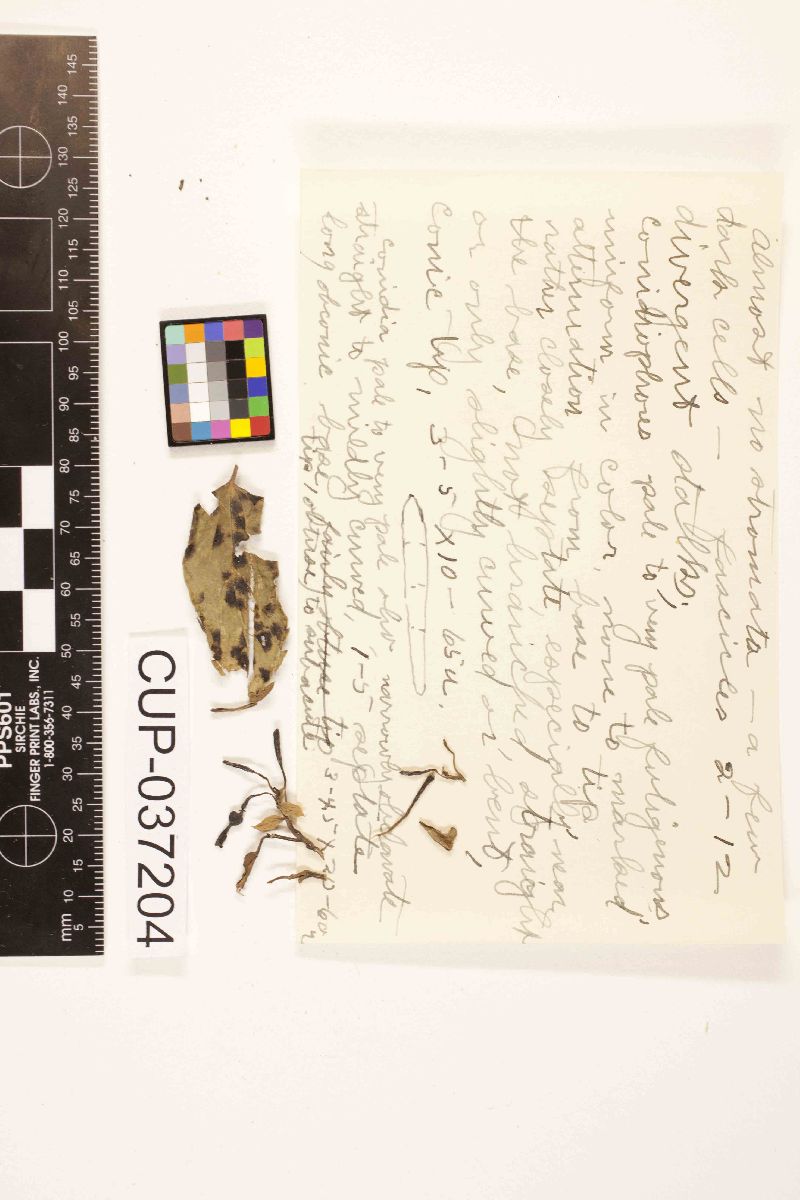 almost no stromata — a few
dark cells — fascicles 2-12
divergent stalks,
conidiophores pale to very pale fuligenous
uniform in color, none to marked
attenuation from base to tip
rather closely septate, especially near
the base, not branched, straight
or only slightly curved or bent,
conic tip, 3-5 X 10-65u.
conidia pale to very pale oliv narrowly obclavate
straight to mildly curved, 1-5-septate
long obconic base, fairly obtuse tip 3-4.5 X 20-60u
tip, obtuse to subacute
CUP-037204
PPS601
SIRCHIE
FINGER PRINT LABS., INC.
1-800-356-7311
mm 5 10 15 20 25 30 35 40 45 50 55 60 65 70 75 80 85 90 95 100 105 110 115 120 125 130 135 140 145